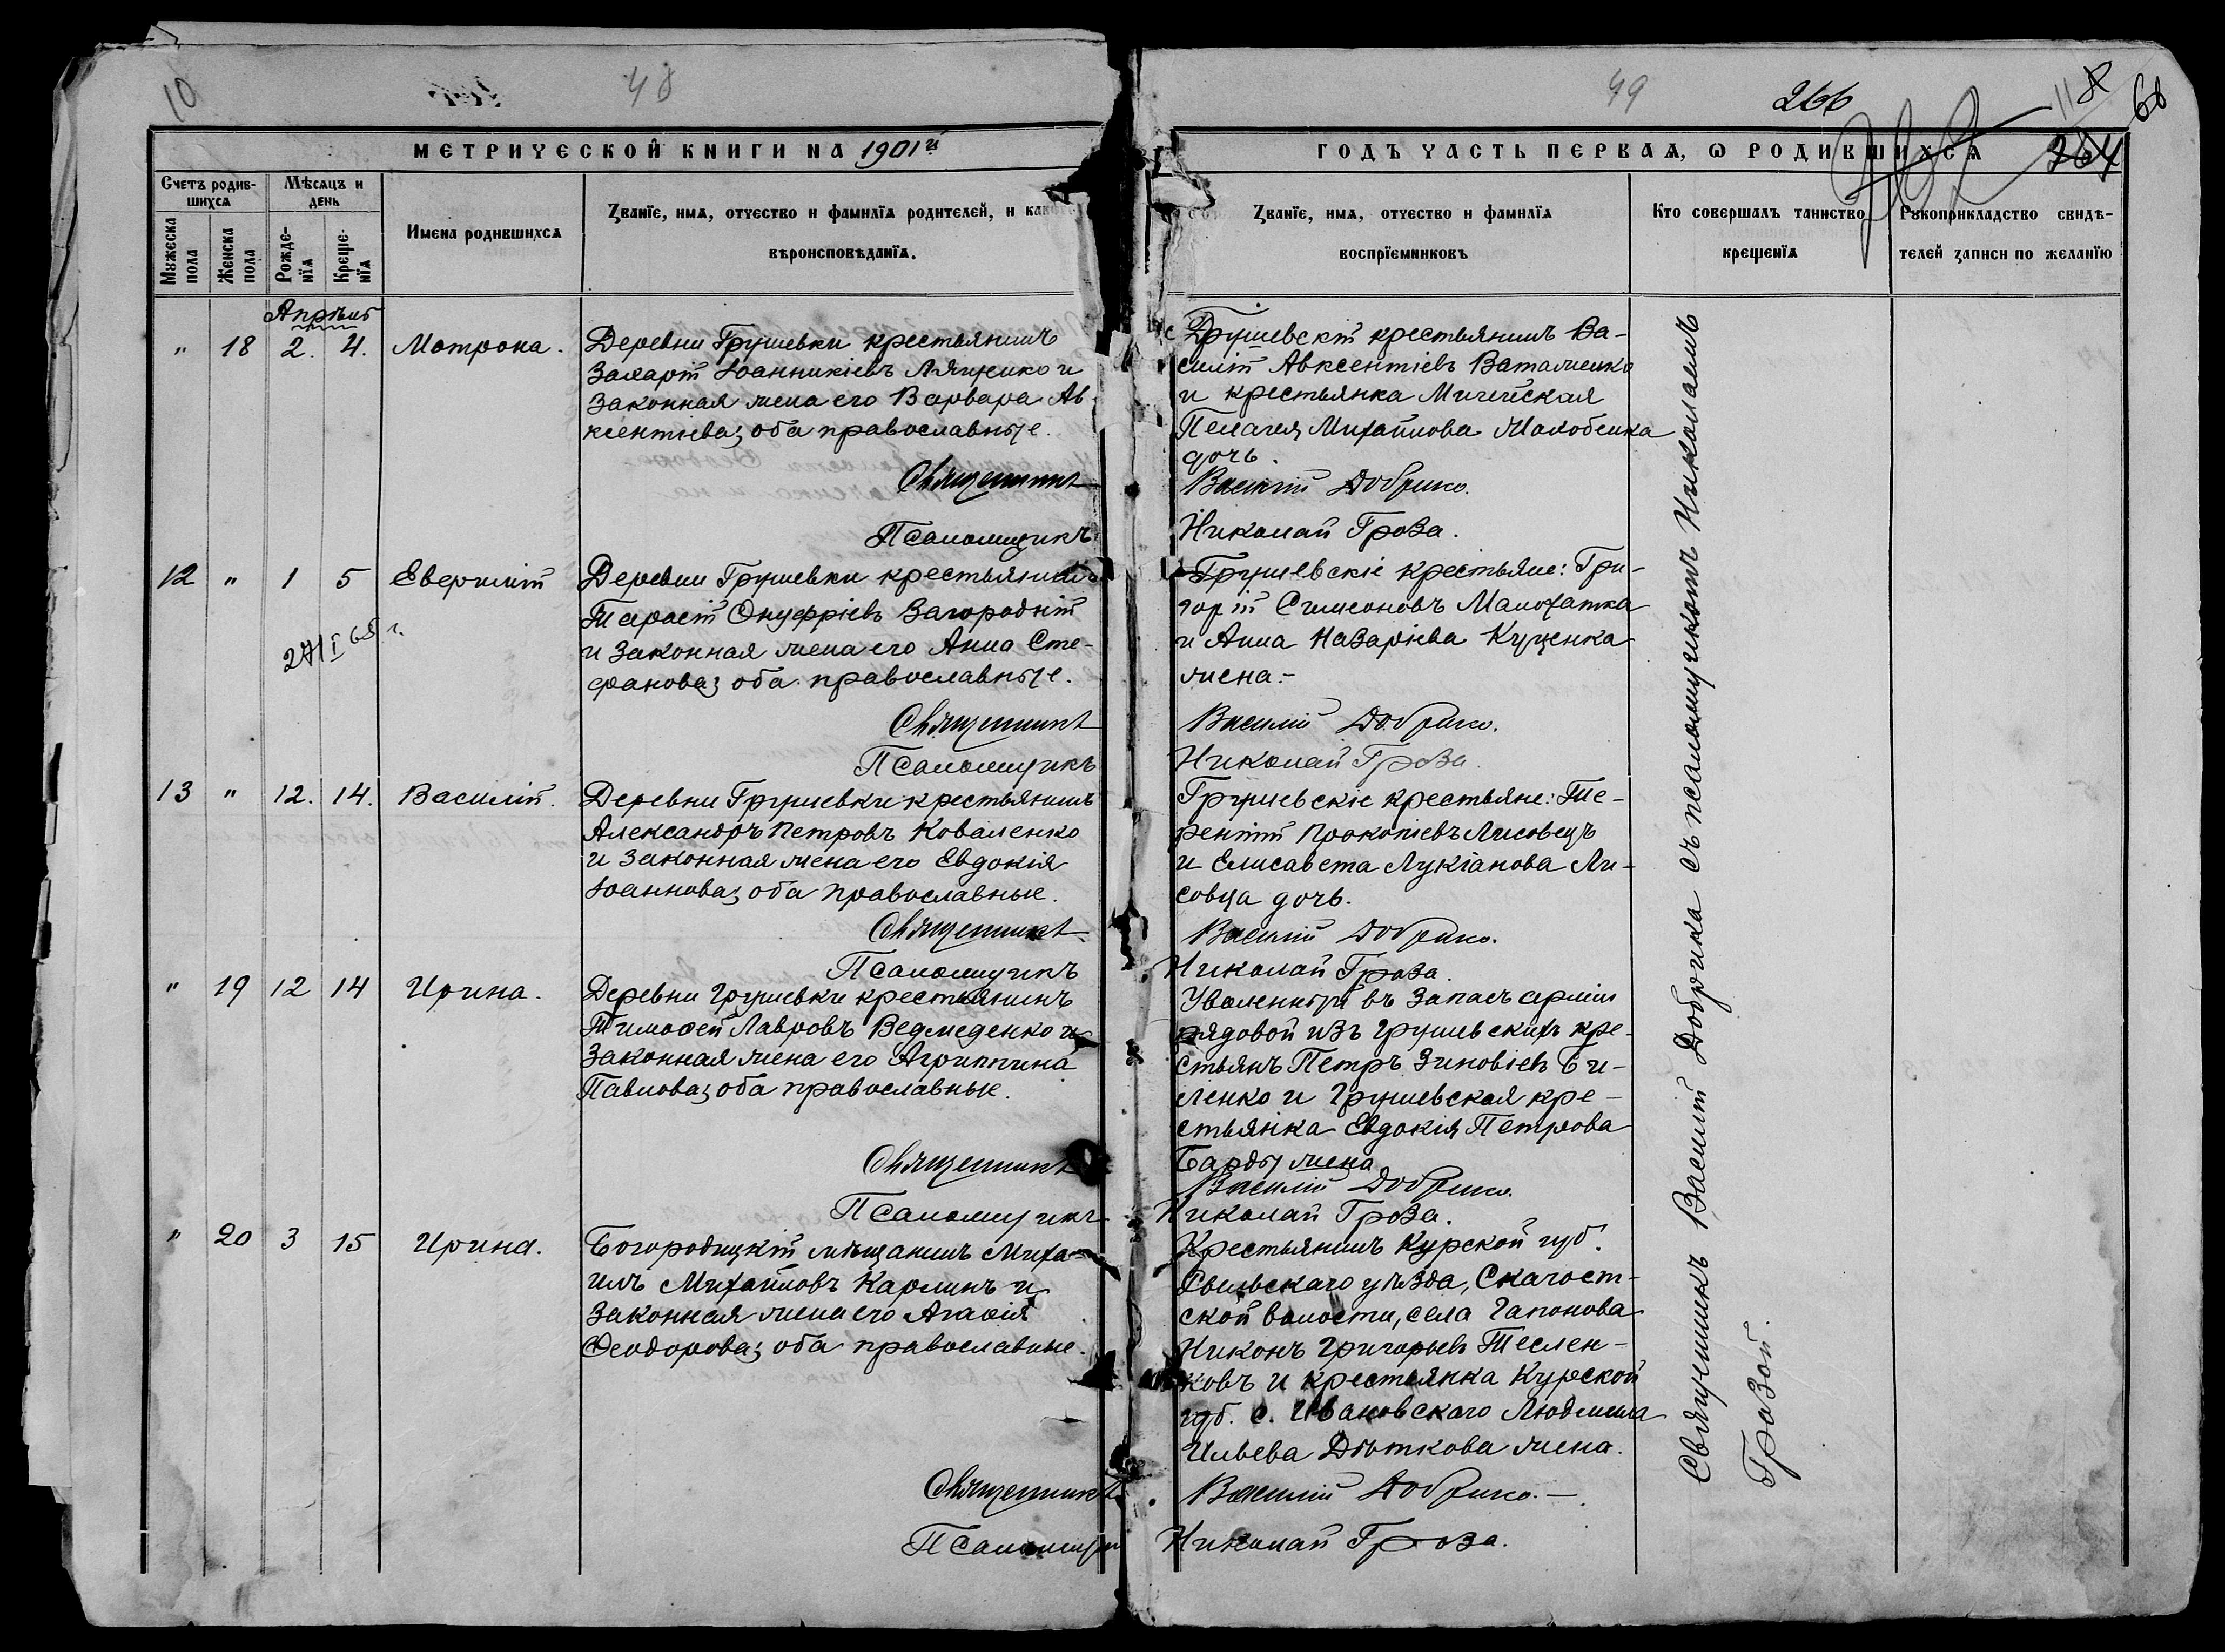 10
48
МЕТРИЧЕСКОЙ КНИГИ НА 1901й
Счетъ родившихся
Мѣсяцъ и день
Имена родившихся
Званіе, имя, отчество и фамилія родителей, и какого
вѣроисповѣданія.
Мужеска пола
Женска пола
Рожденія
Крещенія
Апрѣль
" 18 2. 4. Матрона.
Деревни Грушевки крестьянинъ
Захарій Іоанникіевъ Ляшенко и
законная жена его Варвара Ав-
ксентіева; оба православные.
Священникъ
Псаломщикъ
12 " 1 5 Евермій
Деревни Грушевки крестьянинъ
Тарасій Онуфріевъ Загородній
и законная жена его Анна Сте-
фанова; оба православные.
Священникъ
Псаломщикъ
13 " 12. 14. Василій.
Деревни Грушевки крестьянинъ
Александръ Петровъ Коваленко
и законная жена его Евдокія
Іоаннова; оба православные.
Священникъ
Псаломщикъ
" 19 12 14 Ирина.
Деревни Грушевки крестьянинъ
Тимофей Лавровъ Ведмеденко и
законная жена его Агриппина
Павлова; оба православные.
Священникъ
Псаломщикъ
" 20 3 15 Ирина.
Богородицкій мѣщанинъ Миха-
илъ Михайловъ Карлинъ и
законная жена его Агафія
Феодорова; оба православные.
Священникъ
Псаломщикъ
49
266
118
68
264
ГОДЪ ЧАСТЬ ПЕРВАЯ, О РОДИВШИХСЯ
Званіе, имя, отчество и фамилія
воспріемниковъ
Кто совершалъ таинство
крещенія
Рукоприкладство свидѣ-
телей записи по желанію
Грушевскій крестьянинъ Ва-
силій Авксентіевъ Ваталенко
и крестьянка
Пелагея Михайлова
дочь.
Василій Добрико.
Николай Гроза.
Грушевскіе крестьяне: Гри-
горій Симеоновъ Малохатка
и Анна Назаріева Куценка
жена.-
Василій Добрико.
Николай Гроза.
Грушевскіе крестьяне: Те-
рентій Прокопіевъ Лисовецъ
и Елисавета Лукіанова Ли-
совца дочь.
Василій Добрико.
Николай Гроза.
Уволенный въ запасъ арміи
рядовой изъ Грушевскихъ кре-
стьянъ Петръ Зиновіевъ Би-
ленко и Грушевская кре-
стьянка Евдокія Петрова
Барды жена
Василій Добрико.
Николай Гроза.
Крестьянинъ Курской губ.
уѣзда,
ской волости, села Гапонова
Никонъ Григорьевъ Теслен-
ковъ и крестьянка Курской
губ. с. Ивановскаго Людмила
Ильева Дѣткова жена.
Василій Добрико.-
Николай Гроза.
Священникъ Василій Добрика съ псаломщикомъ Николаемъ
Грозой.